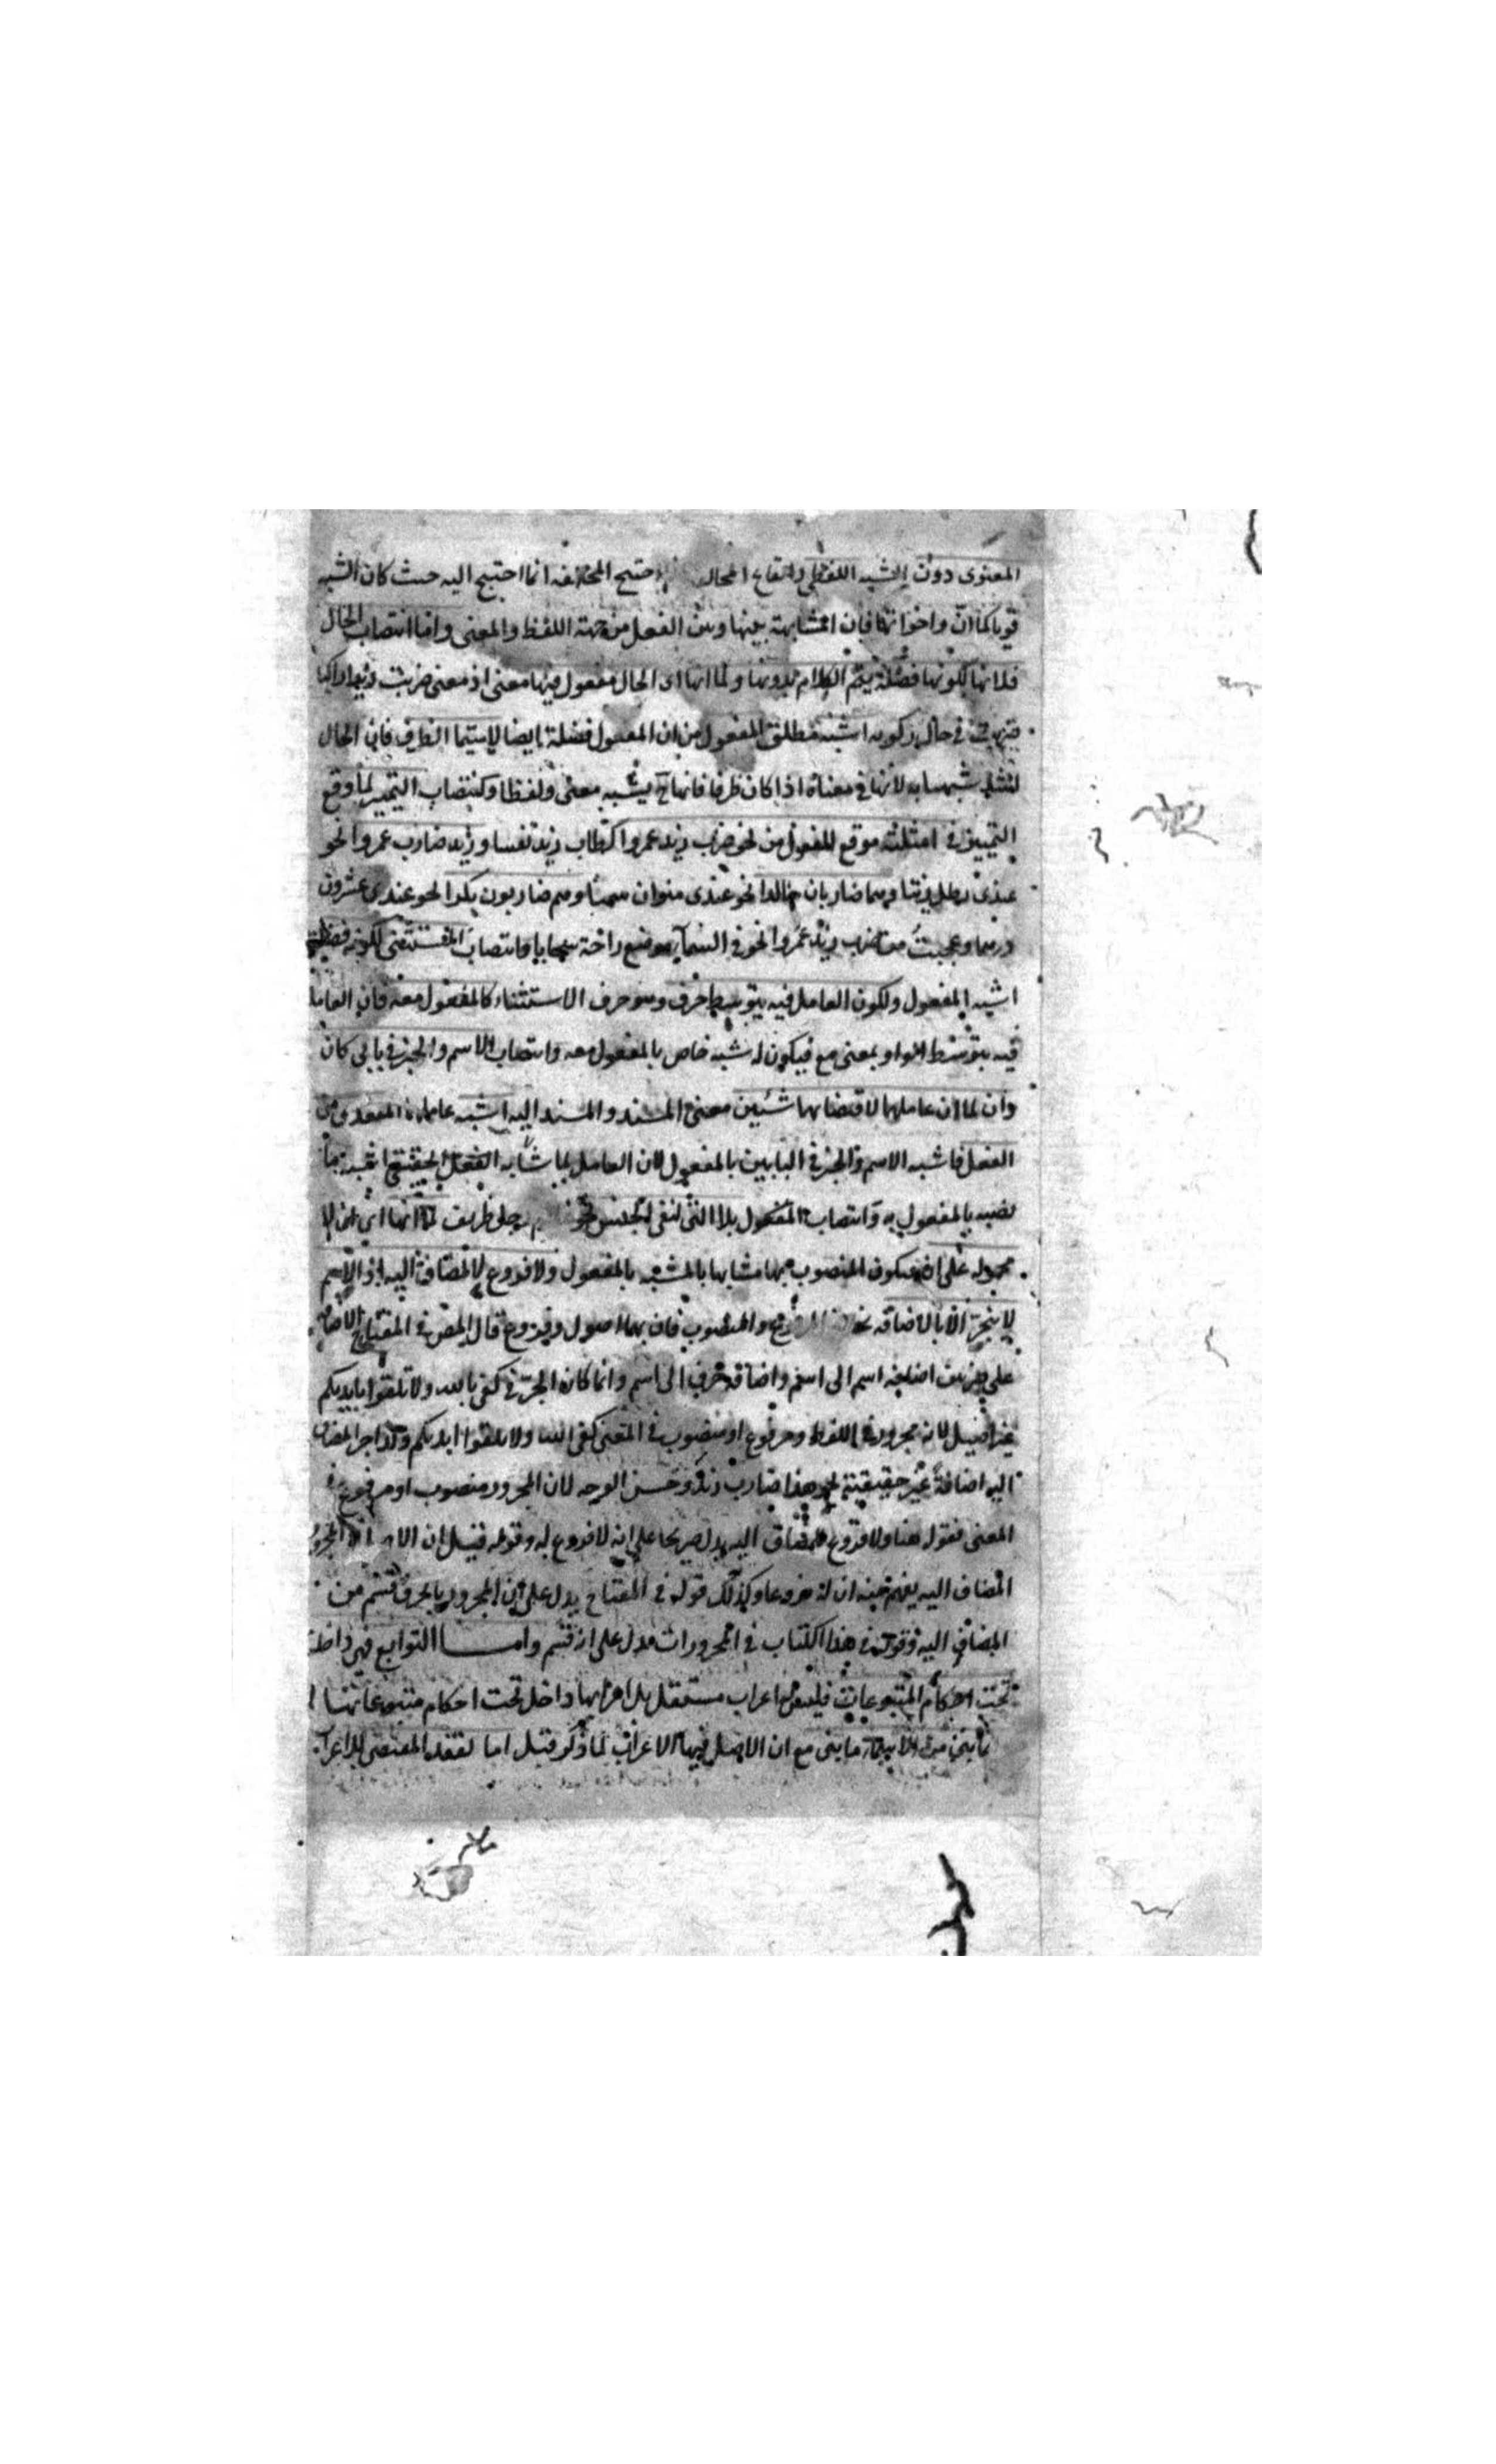 المعنوى دون الشبه اللفظى وامتناع الحال احتيج المخالفه انما احتيج اليه حيث كان الشبه
قويا كما ان واخواتها فان المشابهة بينها وبين الفعل من جهة اللفظ والمعنى واما انتصاب الحال
فلانها لكونها فضلة يتم الكلام بدونها ولما انها اى الحال مفعول فيها معنى اذ معنى ضربت زيدا راكبا
ضربت فى حال ركوبه اشبه مطلق المفعول من ان المفعول فضلة ايضا لاسيما الظرف فان الحال
شبها به لانها فى معناه اذا كان ظرفا فانها ح يشبه معنى ولفظا وكانتصاب التمييز لما وقع
التمييز فى امثلته موقع المفعول من نحو ضرب زيد عمروا كطاب زيد نفسا وزيد ضارب عمروا نحو
عندى رطل زيتا وهما ضاربان خالدا نحو عندى منوان سمنا وهم ضاربون بكرا نحو عندى عشرون
درهما وعجبت من ضرب زيد عمروا نحو فى السماء موضع راحة سحابا وانتصاب المستثنى لكونه فضلة
اشبه المفعول ولكون العامل فيه بتوسط حرف وهو حرف الاستثناء كالمفعول معه فان العامل
فيه بتوسط الواو بمعنى مع فيكون له شبه خاص بالمفعول معه وانتصاب الاسم والخبر فى بابى كان
وان لما ان عاملهما لاقتضائهما شيئين معنى المسند والمسند اليه اشبه عاملهما المتعدى من
الفعل فاشبه الاسم والخبر فى البابين بالمفعول لان العامل لما شابه الفعل الحقيقى اشبه ما
نصبه بالمفعول به وانتصاب المفعول بلا التى لنفى الجنس نحو رجل ظريف لما انها اى ان لا
محموله على ان فيكون المنصوب بها مشابها بالمشبه بالمفعول ولا فروع للمضاف اليه اذ الاسم
لا ينجر الا بالاضافه المرفوع والمنصوب فان بهما اصول وفروع قال المص فى المفتاح الاضافة
على ضربين اضافة اسم الى اسم واضافة حرف الى اسم وانما كان الجر فى كفى بالله ولا تلقوا بايديكم
غير اصيل لانه مجرور فى اللفظ ومرفوع او منصوب فى المعنى كفى الله ولا تلقوا ايديكم وكذا جر المضاف
اليه اضافة غير حقيقية نحو هذا ضارب زيد وحسن الوجه لان المجرور منصوب او مرفوع فى
المعنى فقوله هنا ولا فروع للمضاف اليه يدل صريحا على انه لا فروع له وقوله قبل ان المجرور
المضاف اليه يفهم منه ان له فروعا وكذلك قوله فى المفتاح يدل على ان المجرور بالحرف قسم من
المضاف اليه وقوله فى هذا الكتاب فى المجرورات يدل على انه قسم واما التوابع فهى داخلة
تحت احكام المتبوعات فليس لها اعراب مستقل بل اعرابها داخل تحت احكام متبوعاتها
من الاسماء ما بنى مع ان الاصل فيها الاعراب لما ذكر قبل اما لفقد المقتضى للاعراب